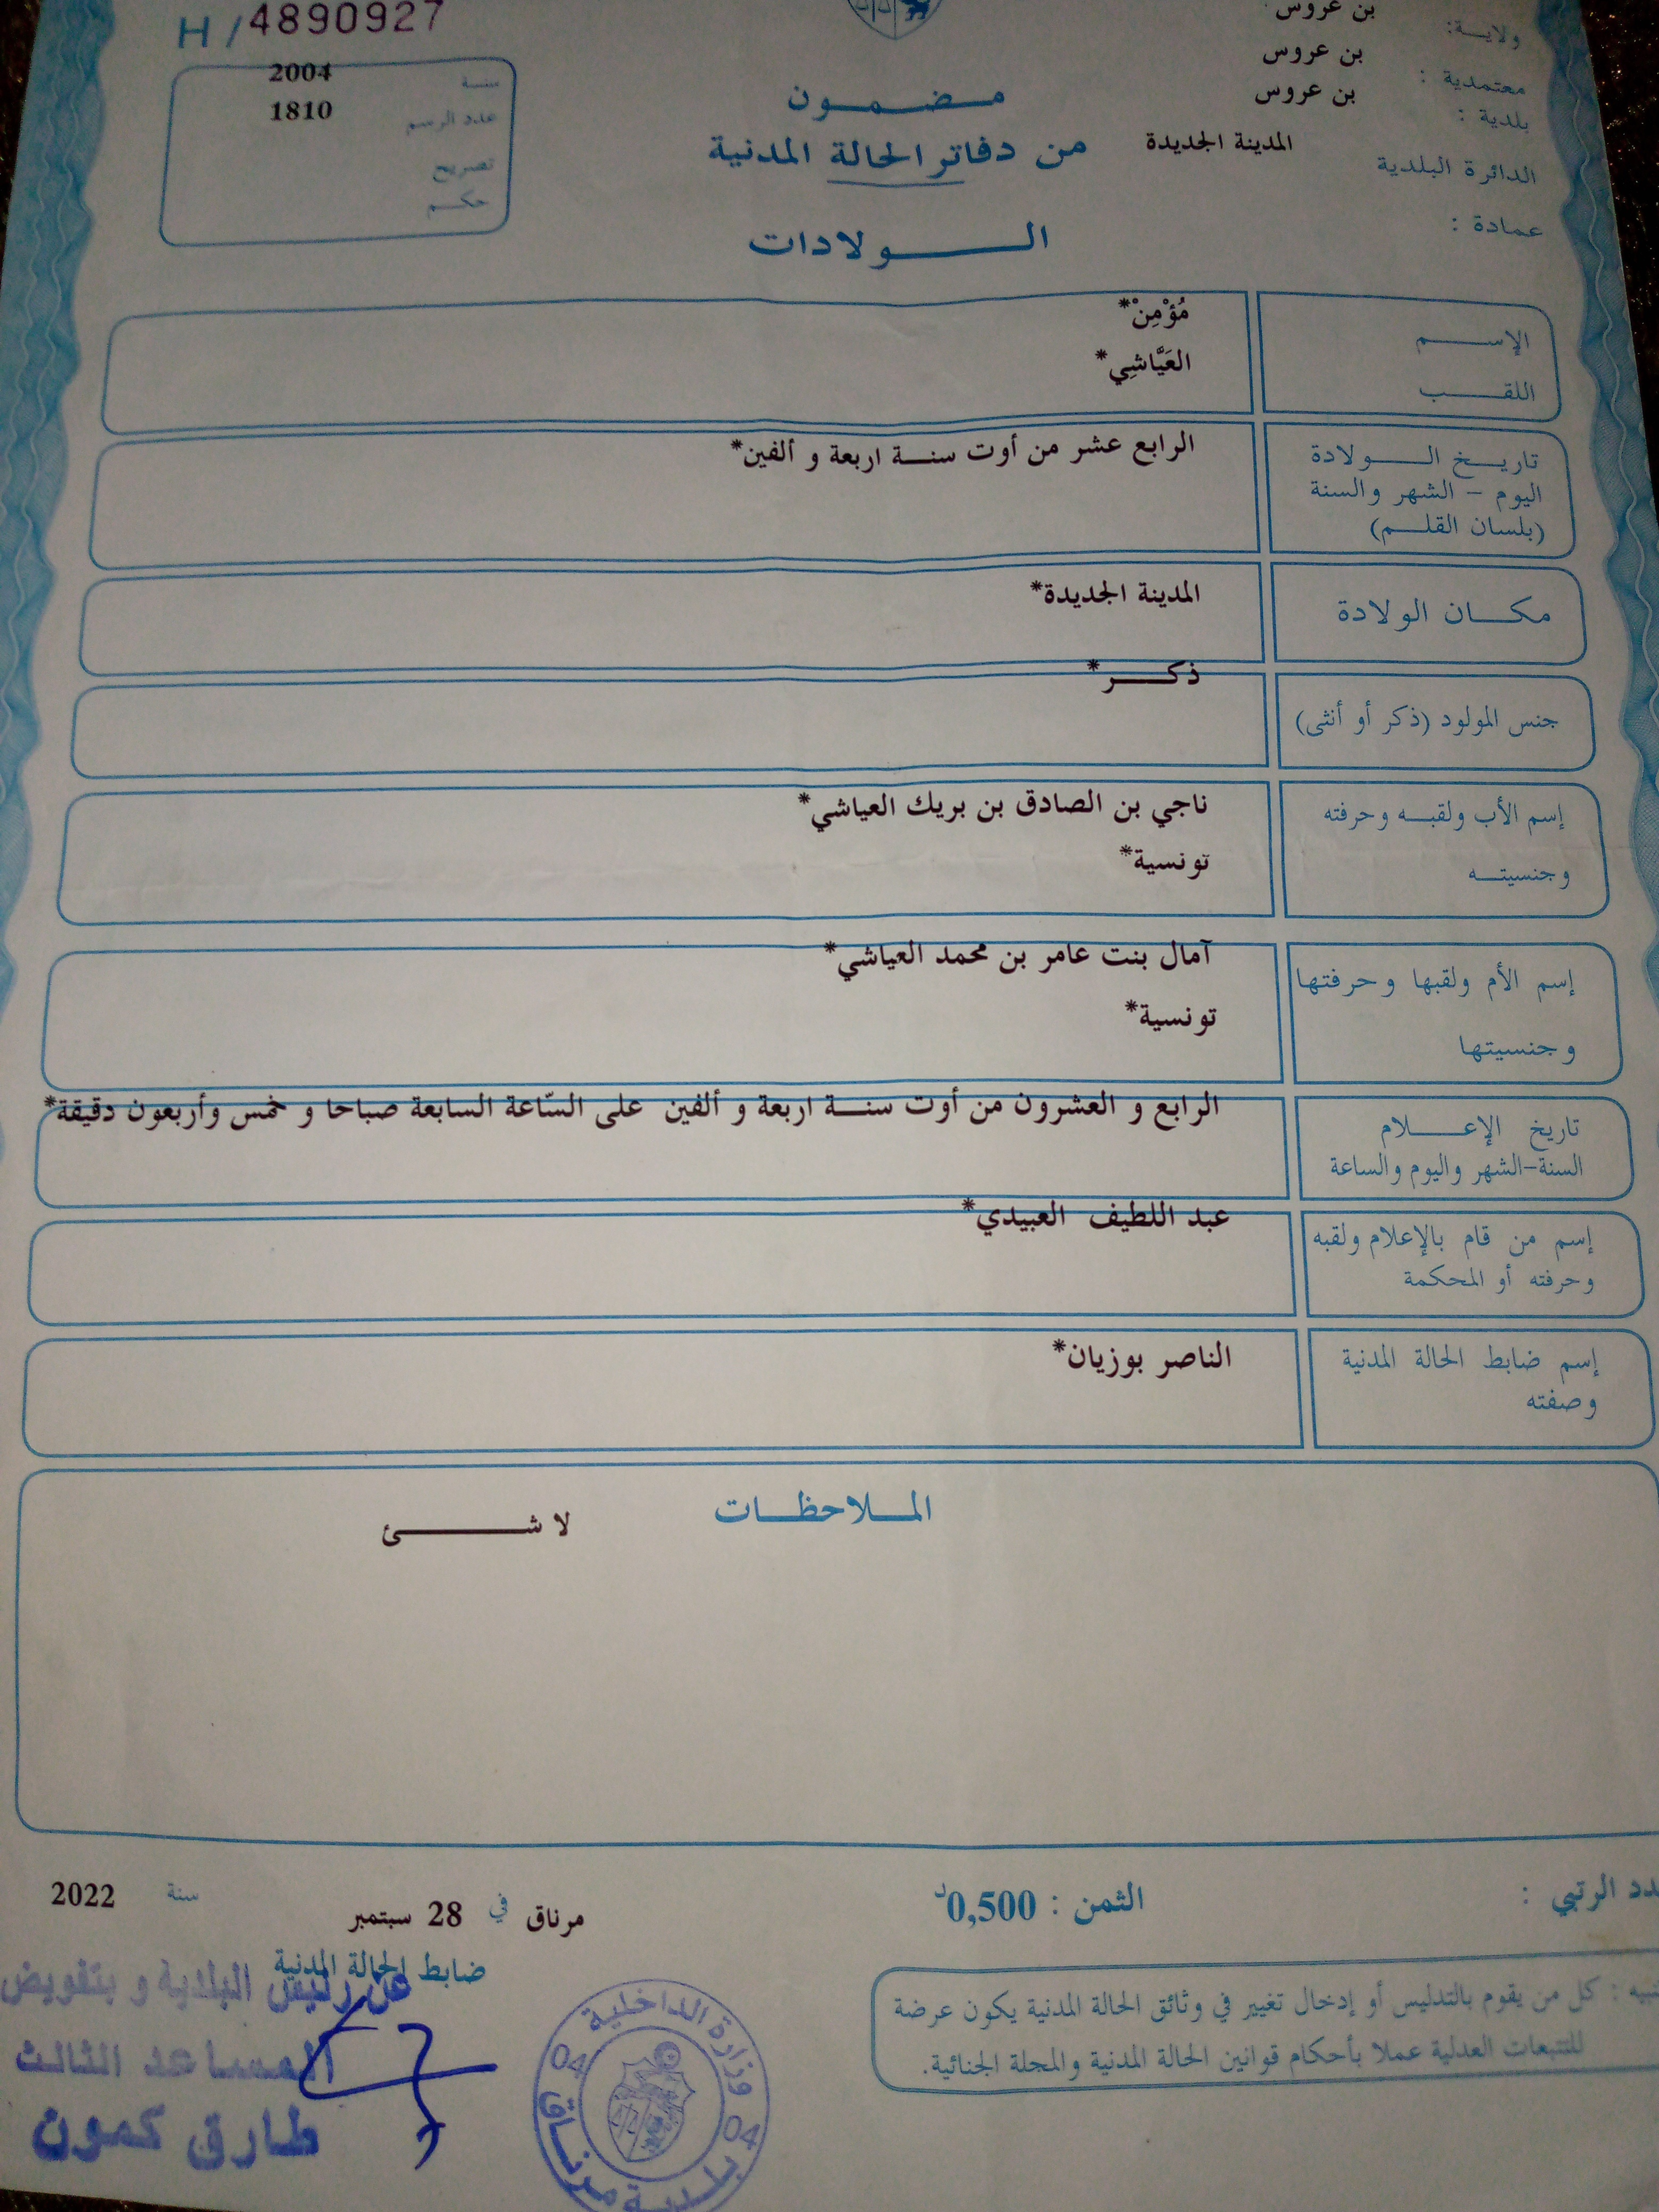 H / 4890927
سنة 2004
عدد الرسم 1810
تصريح
حكم
ولاية: بن عروس
معتمدية : بن عروس
بلدية : بن عروس
الدائرة البلدية المدينة الجديدة
عمادة :
مضمون
من دفاتر الحالة المدنية
الولادات
الإسم مُؤْمِنْ*
اللقب العَيَّاشِي*
تاريخ الولادة الرابع عشر من أوت سنة اربعة و ألفين*
اليوم - الشهر والسنة
(بلسان القلم)
مكان الولادة المدينة الجديدة*
جنس المولود (ذكر أو أنثى) ذكر*
إسم الأب ولقبه وحرفته ناجي بن الصادق بن بريك العياشي*
وجنسيته تونسية*
إسم الأم ولقبها وحرفتها آمال بنت عامر بن محمد العياشي*
وجنسيتها تونسية*
تاريخ الإعلام الرابع و العشرون من أوت سنة اربعة و ألفين على السّاعة السابعة صباحا و خمس وأربعون دقيقة*
السنة-الشهر واليوم والساعة
إسم من قام بالإعلام ولقبه عبد اللطيف العبيدي*
وحرفته أو المحكمة
إسم ضابط الحالة المدنية الناصر بوزيان*
وصفته
الملاحظات
لا شئ
الرتبي :
الثمن : 0,500د
مرناق في 28 سبتمبر سنة 2022
ضابط الحالة المدنية
عن رئيس البلدية و بتفويض
المساعد الثالث
طارق كمون
وزارة الداخلية
04 04
بلدية مرناق
: كل من يقوم بالتدليس أو إدخال تغيير في وثائق الحالة المدنية يكون عرضة
للتتبعات العدلية عملا بأحكام قوانين الحالة المدنية والمجلة الجنائية.